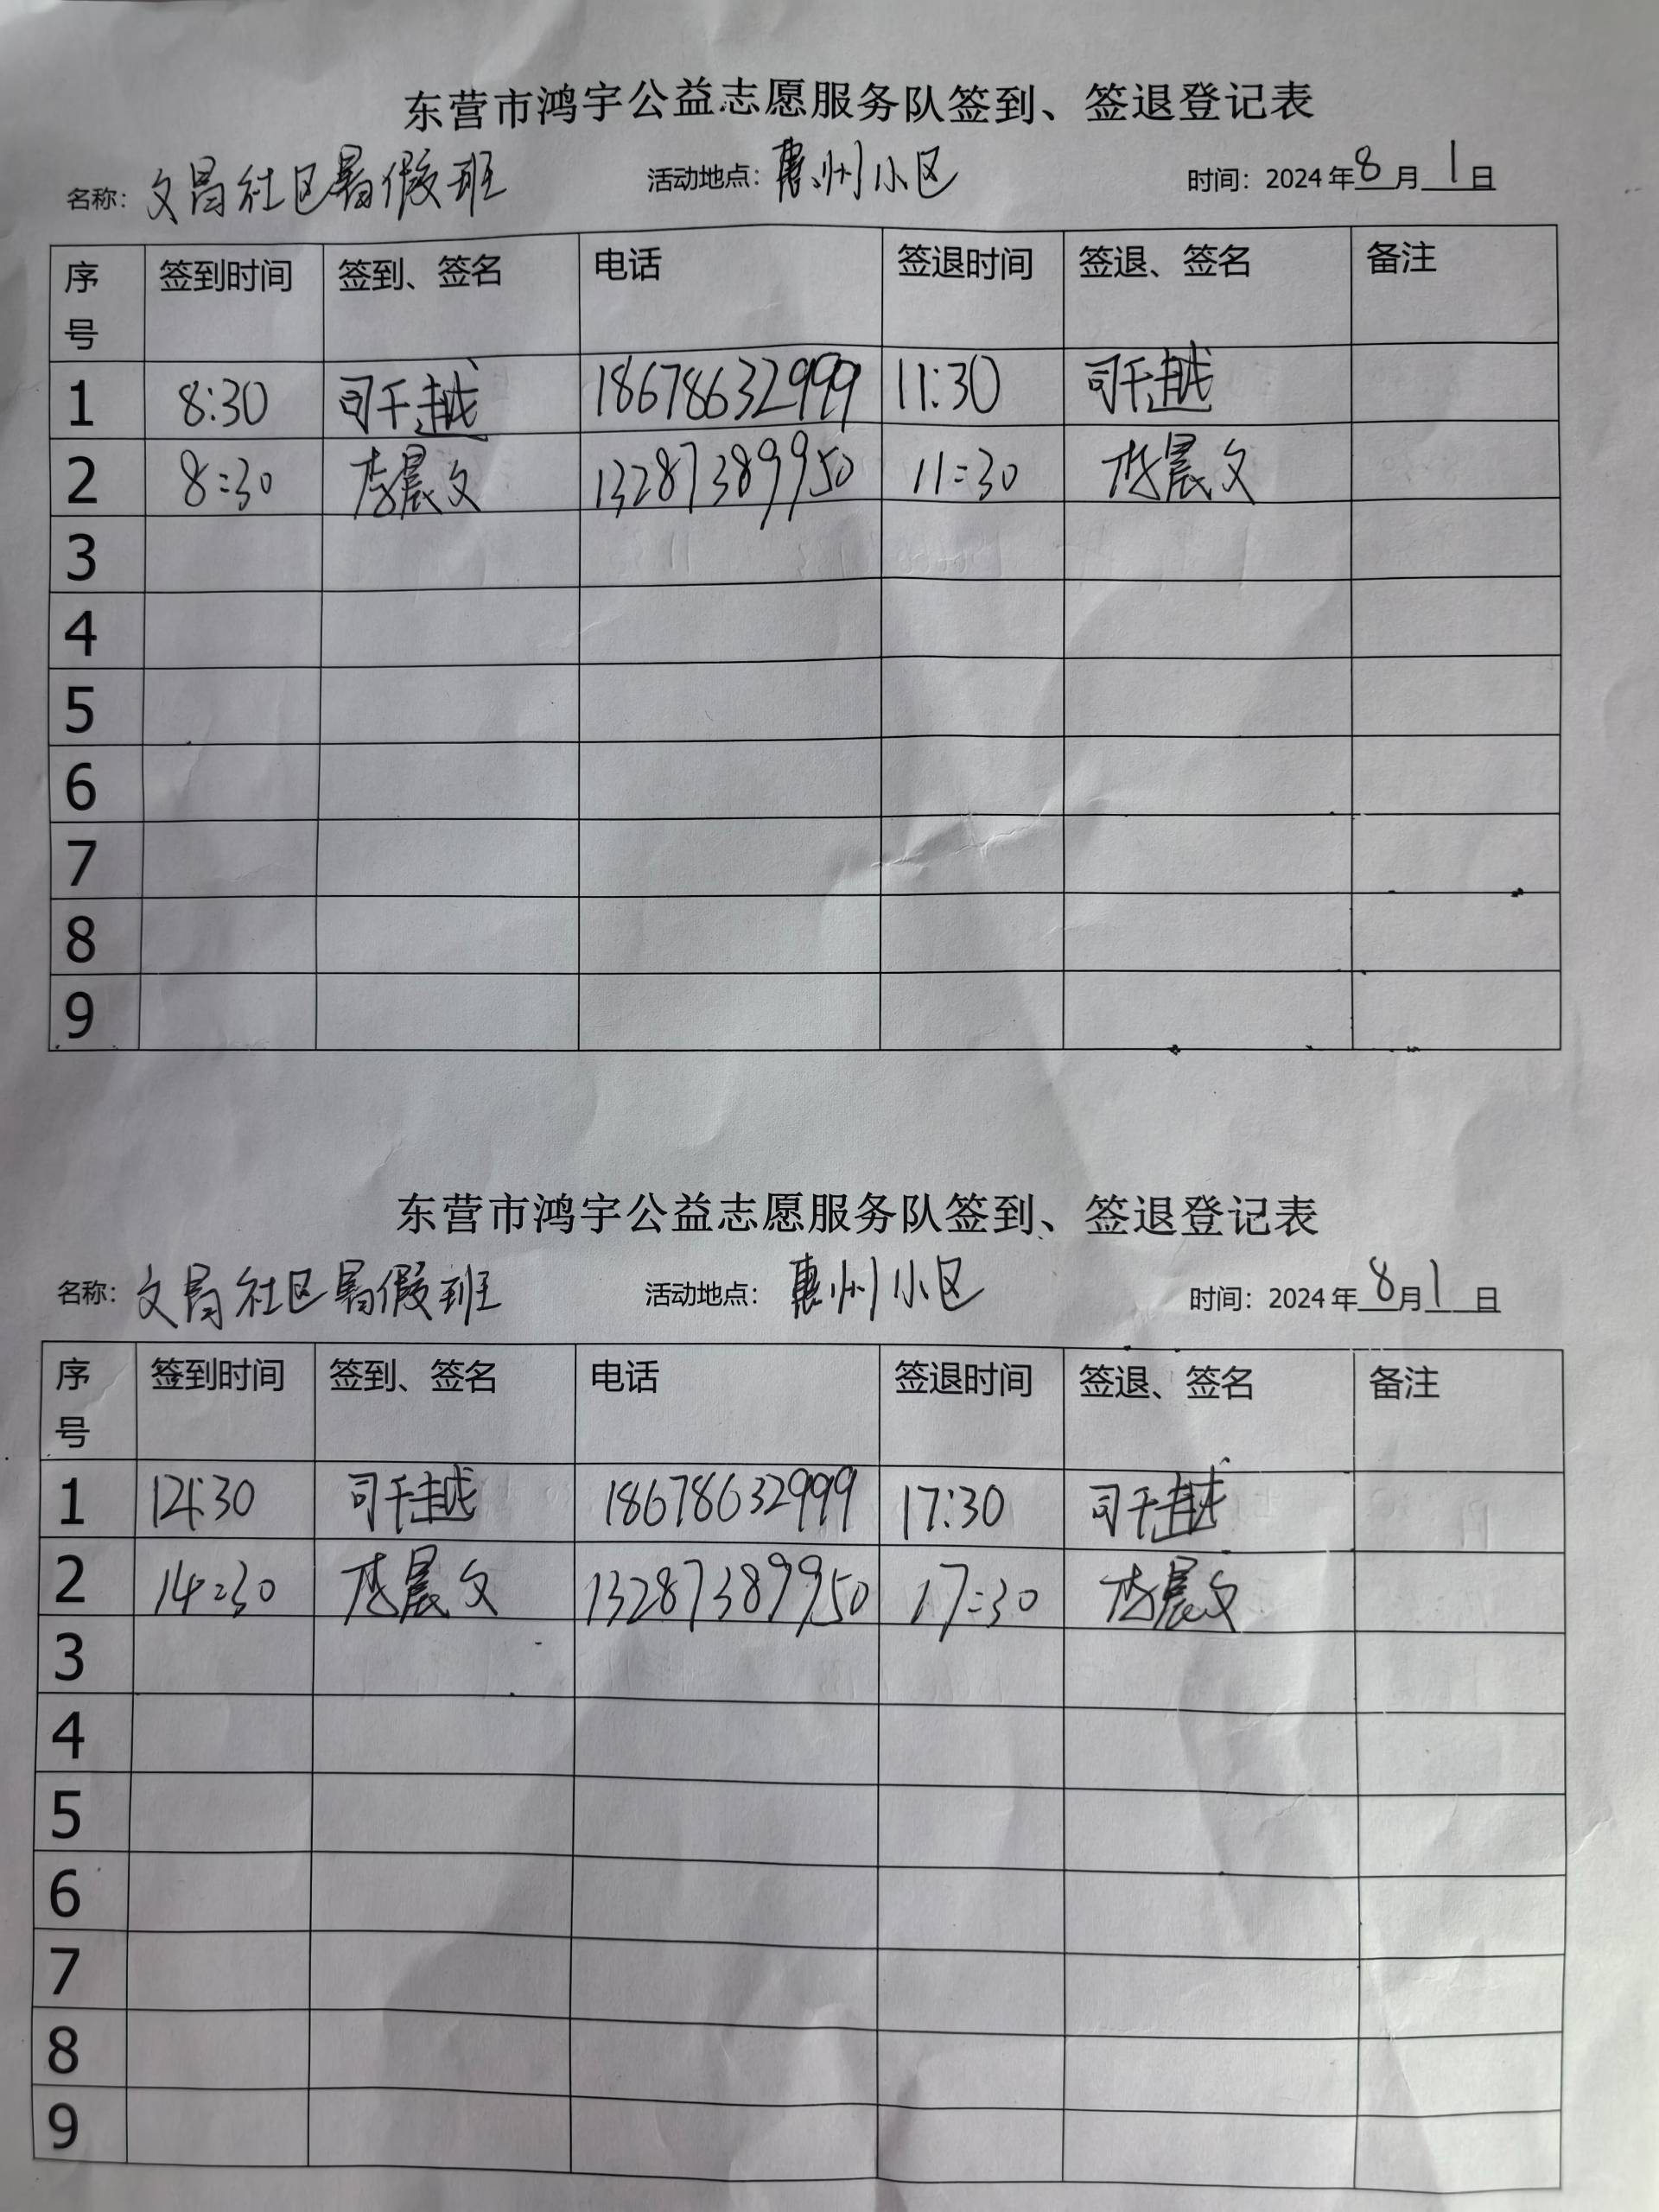 东营市鸿宇公益志愿服务队签到、签退登记表
名称：文昌社区暑假班 活动地点：惠州小区 时间：2024年8月1日
序号 签到时间 签到、签名 电话 签退时间 签退、签名 备注
1 8:30 司千越 18678632999 11:30 司千越
2 8:30 李晨文 13287389950 11:30 李晨文
3
4
5
6
7
8
9
东营市鸿宇公益志愿服务队签到、签退登记表
名称：文昌社区暑假班 活动地点：惠州小区 时间：2024年8月1日
序号 签到时间 签到、签名 电话 签退时间 签退、签名 备注
1 司千越 18678632999 17:30 司千越
2 14:30 李晨文 13287389950 17:30 李晨文
3
4
5
6
7
8
9